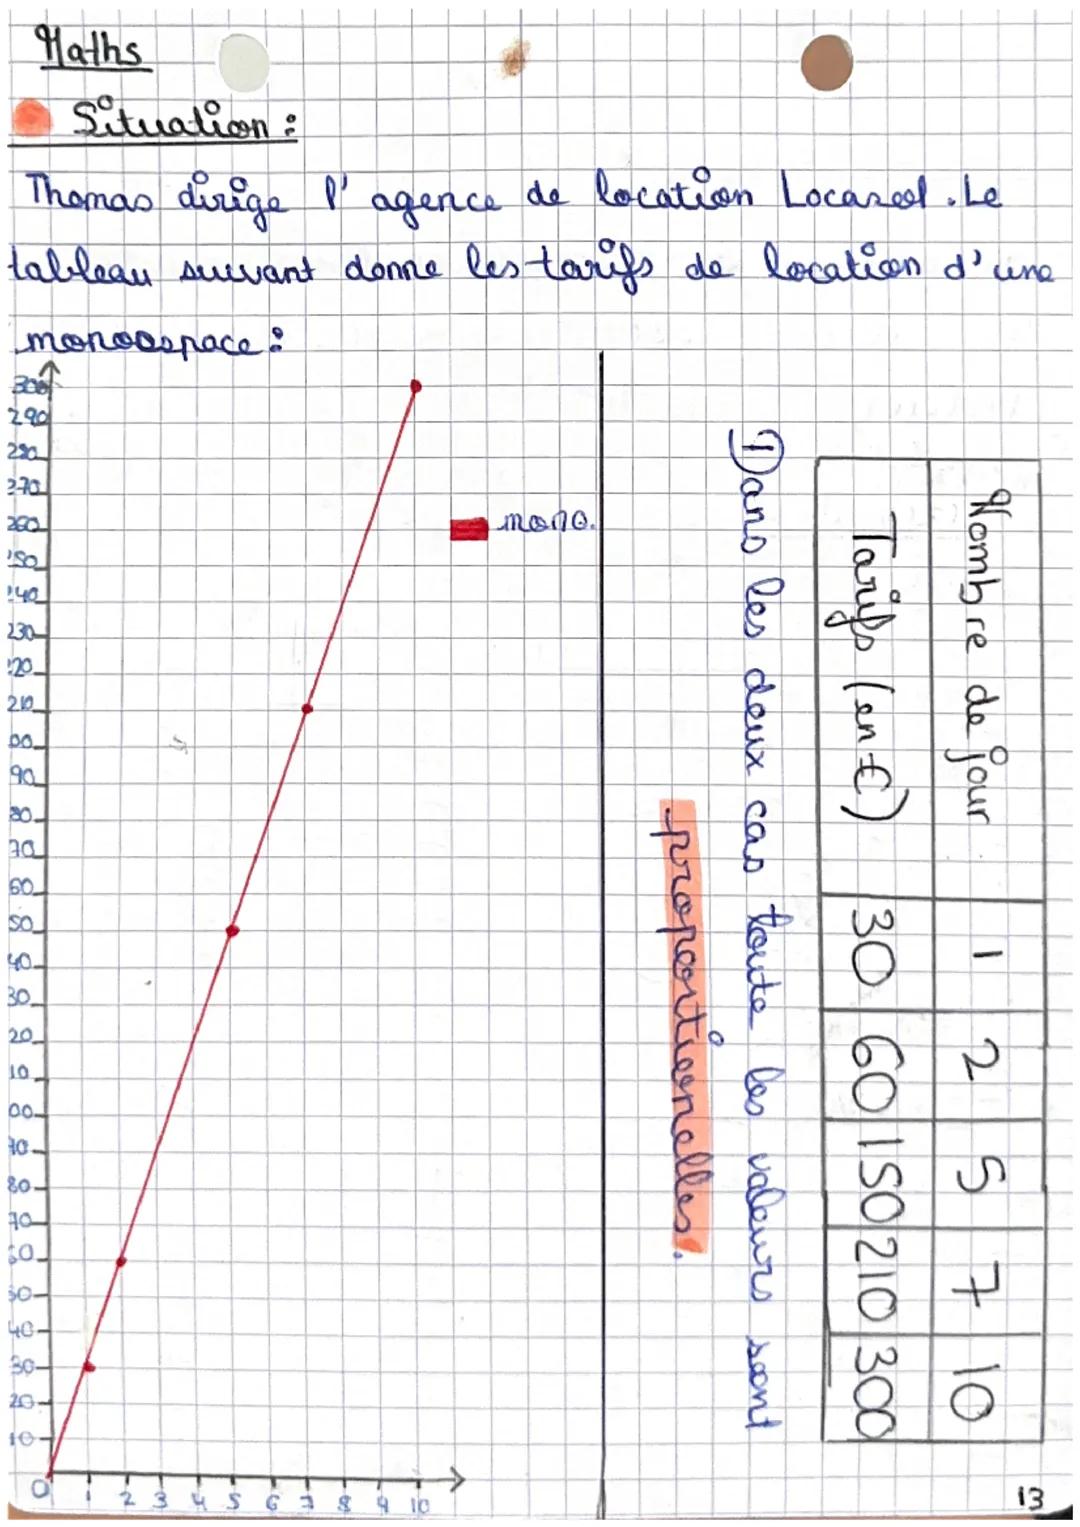 Maths
Situation :
Thomas dirige l'agence de location Locareol. Le
tableau suivant donne les tarifs de location d'une
monoospace :
300
290
280
270
260
250
240
230
220
210
00
90
80
70
60
50
40
30
20
10
00
90
80
70
60
50
40
30
20
10
0 1 2 3 4 5 6 7 8 9 10
mono.
Nombre de jour 1 2 5 7 10
Tarifs (en €) 30 60 150 210 300
1) Dans les deux cas toute les valeurs sont
proportionnelles.
13